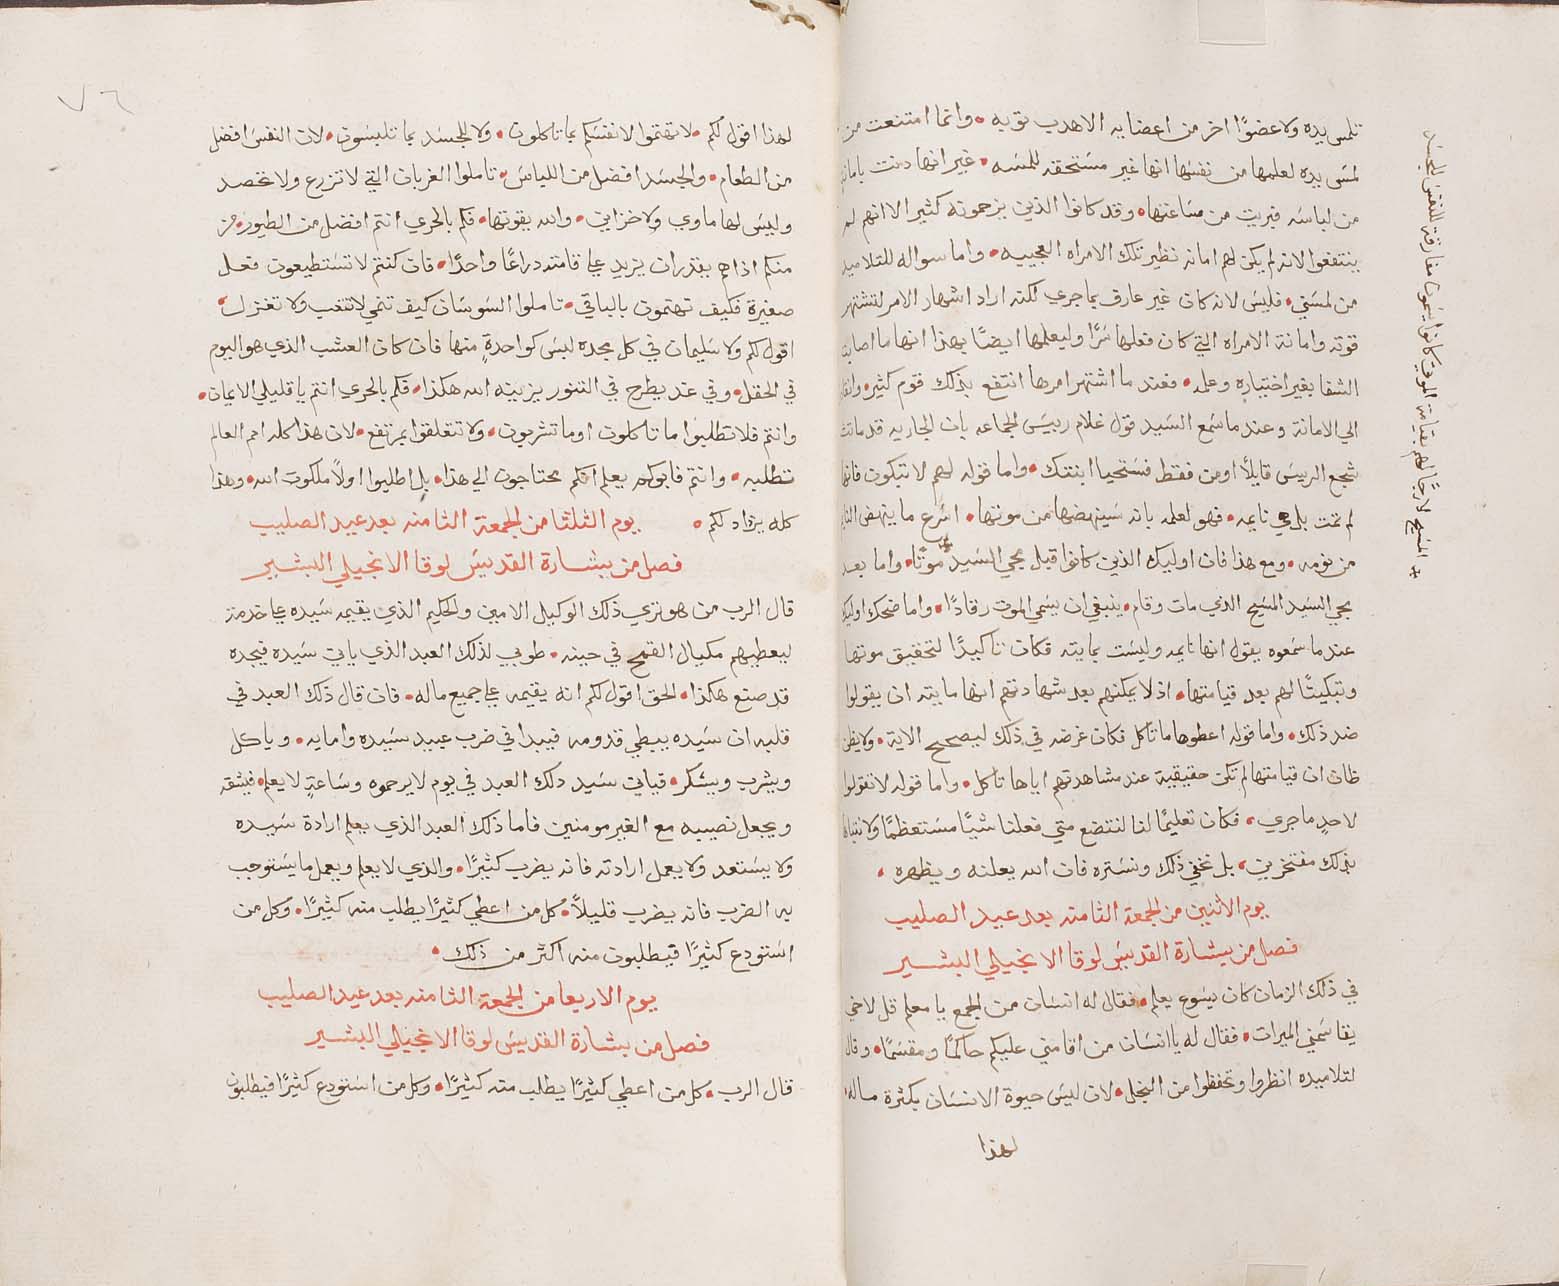 تلمس يده ولا عضوًا اخر من اعضايه الا هدب ثوبه • وانما امتنعت من
لمس يده لعلمها من نفسها انها غير مستحقه للمسه • غير انها دنت بامانه
من لباسه فبريت من مساعتها • وقد كانوا الذين يزحموته كثير الا انهم لم
ينتفعوا لانه لم يكن لهم امانه نظير تلك الامراه العجيبه • واما سواله للتلاميد
من لمسني • فليس لانه كان غير عارق بما جرى لكنه اراد اشهار الامر لتشتهر
قوته وامانة الامراه التي كان فعلها سرًا وليعلمها ايضًا بهذا انها ما اصابت
الشفا بغير اختياره وعلمه • فعند ما اشتهر امرها انتفع بذلك قوم كثير •
الي الامانة وعند ما سمع السيد قول غلام رييس الجماعه بان الجاريه قد ماتت
شجع الرييس قايلًا اومن فقط فستحيا ابنتك • واما قوله لهم لا تبكون فانها
لم تمت بل هي نايمه • فهو لعلمه بانه سينهضها من موتها • اسرع ما ينهض النايم
من نومه • ومع هذا فان اوليك الذين كانوا قبل مجي السيد موتًا • واما بعد
مجي السيد المسيح الذي مات وقام • ينبغي ان يسمي الموت رقادًا • واما ضحك اوليك
عندما سمعوه يقول انها نايمه وليست بمايته فكان تاكيدًا لتحقيق موتها
وتبكيتًا لهم بعد قيامتها • اذ لا يمكنهم بعد شهادتهم انها مايته ان يقولوا
ضد ذلك • واما قوله اعطوها ما تاكل فكان غرضه في ذلك ليصحح الاية • ولا يظن
ظان ان قيامتها لم تكن حقيقية عند مشاهدتهم اياها تاكل • واما قوله لا تقولوا
لاحد ما جري • فكان تعليمًا لنا لنتضع متي فعلنا شيًا مستعظمًا ولا نتباها
بذلك مفتخرين • بل نخفي ذلك ونستره فان الله يعلنه ويظهره •
يوم الاثنين من الجمعة الثامنه بعد عيد الصليب
فصل من بشارة القديس لوقا الانجيلي البشير
في ذلك الزمان كان يسوع يعلم • فقال له انسان من الجمع يا معلم قل لاخي
يقاسمني الميرات • فقال له يا انسان من اقامني عليكم حاكمًا ومقسمًا • وقال
لتلاميده انظروا وتحفظوا من البخل • لان ليس حيوة الانسان بكثرة ماله •
لهذا
٧٦
لهذا اقول لكم • لا تهتموا لانفسكم بما تاكلون • ولا للجسد بما تلبسون • لان النفس افضل
من الطعام • والجسد افضل من اللباس • تاملوا الغربان التي لا تزرع ولا تحصد
وليس لها ماوي ولا خزاين • والله يقوتها • فكم بالحري انتم افضل من الطيور • من
منكم اذا هم يقدر ان يزيد علي قامته دراعًا واحدًا • فان كنتم لا تستطيعون فعل
صغيرة فكيف تهتمون بالباقي • تاملوا السوسان كيف تنمي لا تتعب ولا تغزل •
اقول لكم ولا سليمان في كل مجده لبس كواحدةٍ منها فان كان العشب الذي هو اليوم
في الحقل • وفي غد يطرح في التنور يزينه الله هكذا • فكم بالحري انتم يا قليلي الايمان •
وانتم فلا تطلبوا ما تاكلون او ما تشربون • ولا تتعلقوا بمرتفع • لان هذا كله امم العالم
تطلبه • وانتم فابوكم يعلم انكم محتاجون الي هذا • بل اطلبوا اولًا ملكوت الله • وهذا
كله يزداد لكم • يوم الثلثا من الجمعة الثامنه بعد عيد الصليب
فصل من بشارة القديس لوقا الانجيلي البشير
قال الرب من هو تري ذلك الوكيل الامين والحكيم الذي يقيمه سيده علي خدمته
ليعطيهم مكيال القمح في حينه • طوبي لذلك العبد الذي ياتي سيده فيجده
قد صنع هكذا • الحق اقول لكم انه يقيمه علي جميع ماله • فان قال ذلك العبد في
قلبه ان سيده يبطي قدومه فيبدا في ضرب عبيد سيده وامايه • وياكل
ويشرب ويسكر • فياتي سيد دلك العبد في يوم لا يرجوه وساعةٍ لا يعلم • فيشقه
ويجعل نصيبه مع الغير مومنين فاما ذلك العبد الذي يعلم ارادة سيده
ولا يستعد ولا يعمل ارادته فانه يضرب كثيرًا • والذي لا يعلم ويعمل ما يستوجب
به الضرب فانه يضرب قليلًا • كل من اعطي كثيرًا يطلب منه كثيرًا • وكل من
استودع كثيرًا فيطلبون منه اكثر من ذلك •
يوم الاربعا من الجمعة الثامنه بعد عيد الصليب
فصل من بشارة القديس لوقا الانجيلي البشير
قال الرب • كل من اعطي كثيرًا يطلب منه كثيرًا • وكل من استودع كثيرًا فيطلبون